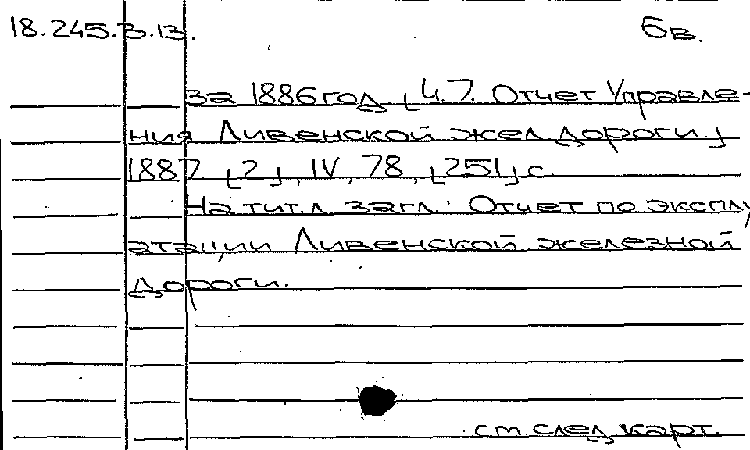 18.245.3.13. 6в.
за 1886 год [Ч.7. Отчет Управле-
ния Ливенской жел. дороги.]
1887. [2], IV, 78, [251] с.
На тит.л. загл.: Отчет по эксплу
атации Ливенской железной
дороги.
см. след. карт.